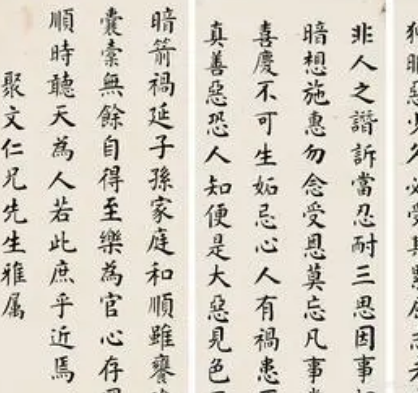 非人之譖訴當忍耐三思因事
暗想施惠勿念受恩莫忘凡事
喜慶不可生妬忌心人有禍患
真善惡恐人知便是大惡見色
暗箭禍延子孫家庭和順雖饔
囊橐無餘自得至樂為官心存
順時聽天為人若此庶乎近焉
聚文仁兄先生雅属